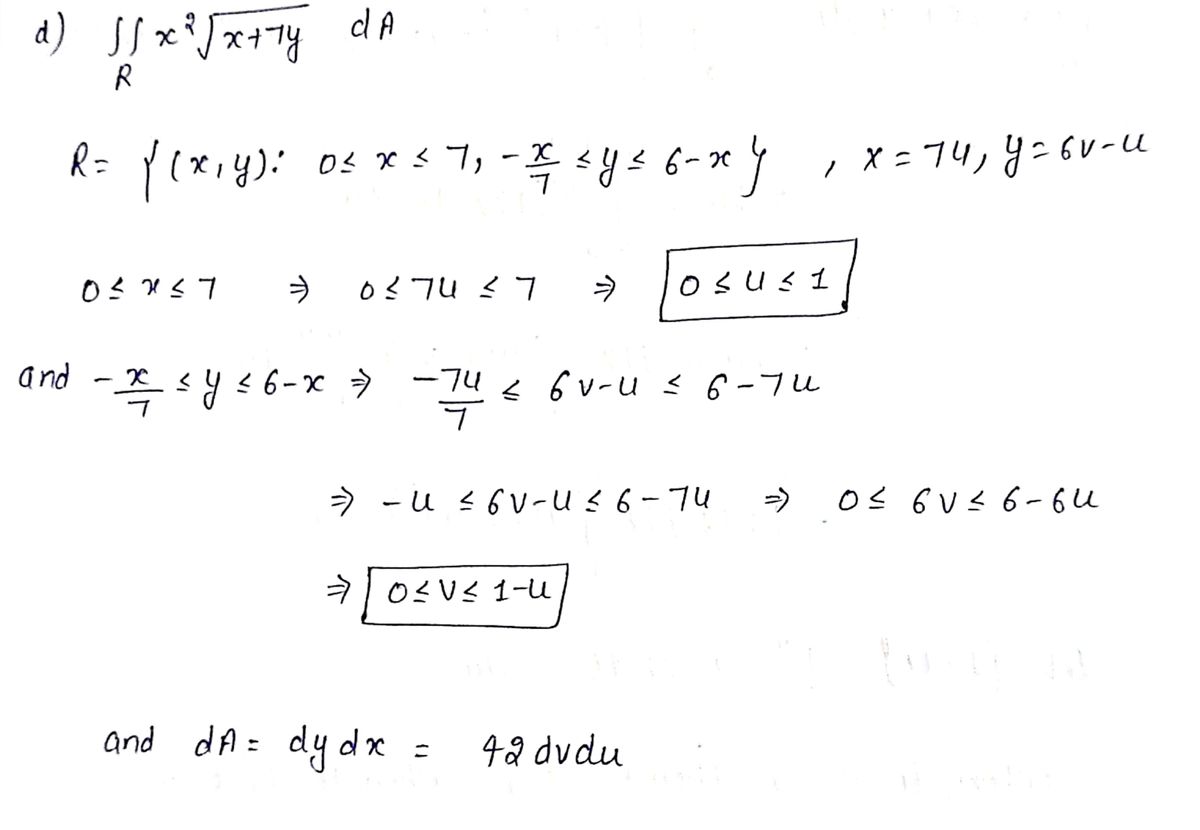 d) ∫∫ x²√(x+7y) dA
R
R = {(x,y): 0 ≤ x ≤ 7, -x/7 ≤ y ≤ 6-x}, x = 7u, y = 6v-u
0 ≤ x ≤ 7 ⇒ 0 ≤ 7u ≤ 7 ⇒ 0 ≤ u ≤ 1
and -x/7 ≤ y ≤ 6-x ⇒ -7u/7 ≤ 6v-u ≤ 6-7u
⇒ -u ≤ 6v-u ≤ 6-7u ⇒ 0 ≤ 6v ≤ 6-6u
⇒ 0 ≤ v ≤ 1-u
and dA = dy dx = 42 dv du